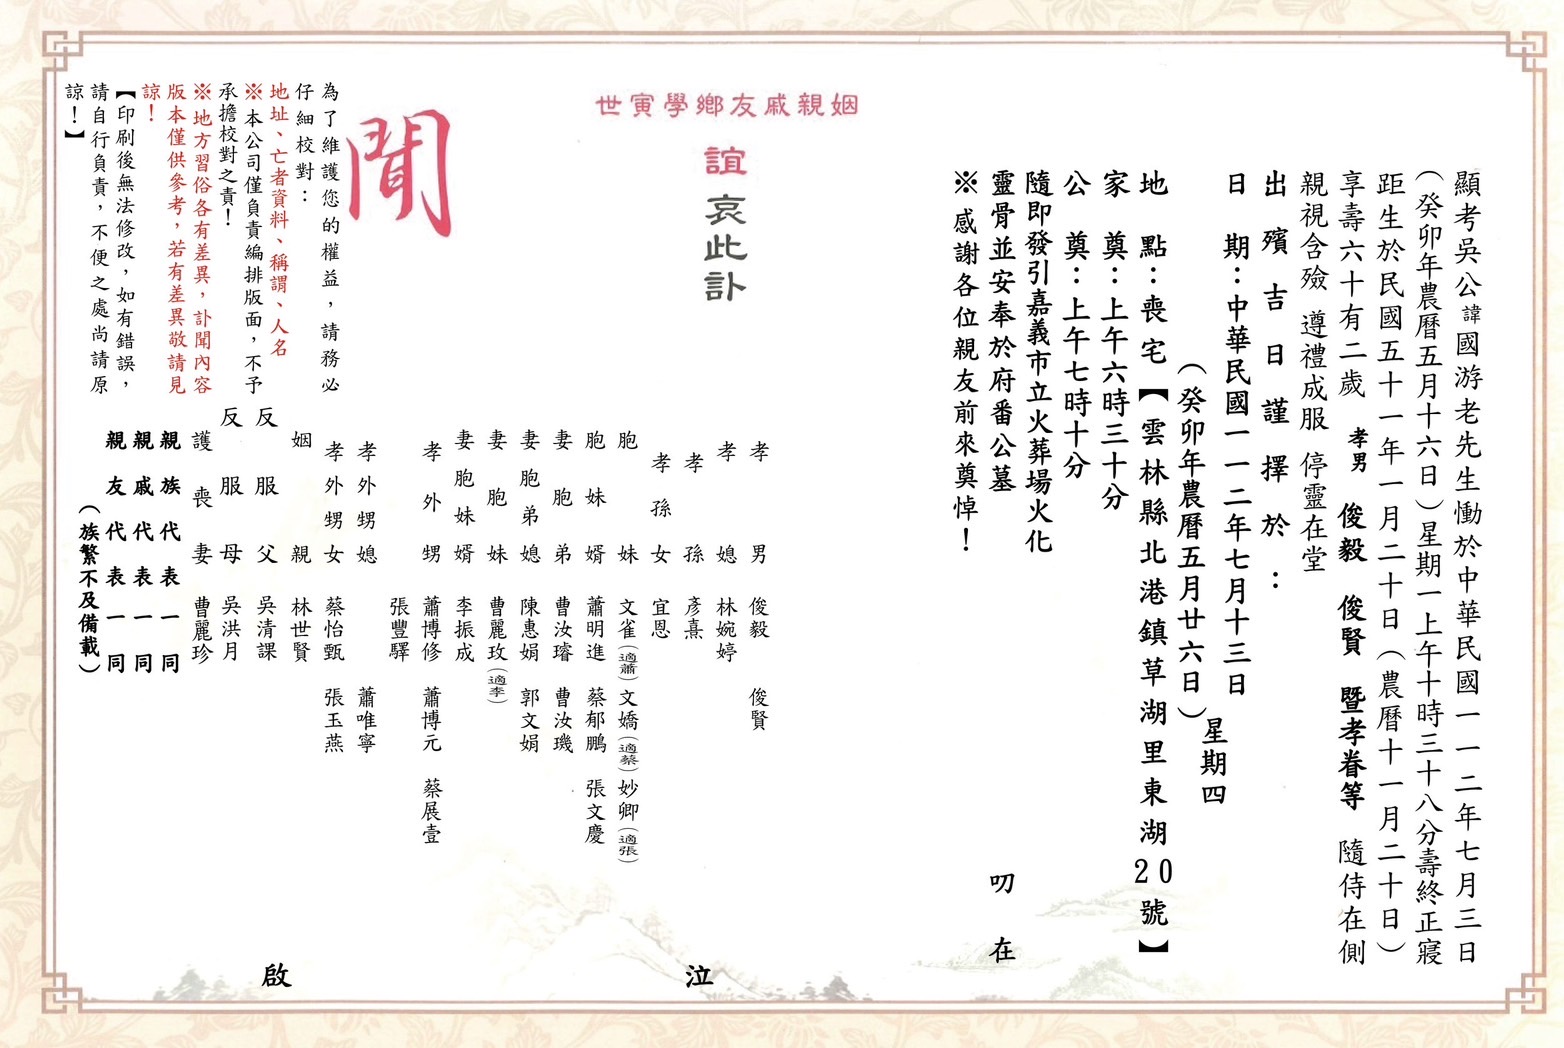 顯考吳公諱國游老先生慟於中華民國一一二年七月三日
（癸卯年農曆五月十六日）星期一上午十時三十八分壽終正寢
距生於民國五十一年一月二十日（農曆十一月二十日）
享壽六十有二歲 孝男 俊毅 俊賢 暨孝眷等 隨侍在側
親視含殮 遵禮成服 停靈在堂
出殯吉日謹擇於：
日期：中華民國一一二年七月十三日
（癸卯年農曆五月廿六日）星期四
地點：喪宅【雲林縣北港鎮草湖里東湖20號】
家奠：上午六時三十分
公奠：上午七時十分
隨即發引嘉義市立火葬場火化
靈骨並安奉於府番公墓
※感謝各位親友前來奠悼！
叨在
姻親戚友鄉學寅世
誼哀此訃
聞
孝男 俊毅 俊賢
孝媳 林婉婷
孝孫 彥熹
孝孫女 宜恩
胞妹 文雀（適蕭）文嬌（適蔡）妙卿（適張）
胞妹婿 蕭明進 蔡郁鵬 張文慶
妻胞弟 曹汝璿 曹汝璣
妻胞弟媳 陳惠娟 郭文娟
妻胞妹 曹麗玫（適李）
妻胞妹婿 李振成
孝外甥 蕭博修 蕭博元 蔡展壹
張豐驛
孝外甥媳 蕭唯寧
孝外甥女 蔡怡甄 張玉燕
姻親 林世賢
反服父 吳清課
反服母 吳洪月
護喪妻 曹麗珍
親族代表一同
親戚代表一同
親友代表一同
（族繁不及備載）
泣
啟
為了維護您的權益，請務必
仔細校對：
地址、亡者資料、稱謂、人名
※本公司僅負責編排版面，不予
承擔校對之責！
※地方習俗各有差異，訃聞內容
版本僅供參考，若有差異敬請見
諒！
【印刷後無法修改，如有錯誤，
請自行負責，不便之處尚請原
諒！】